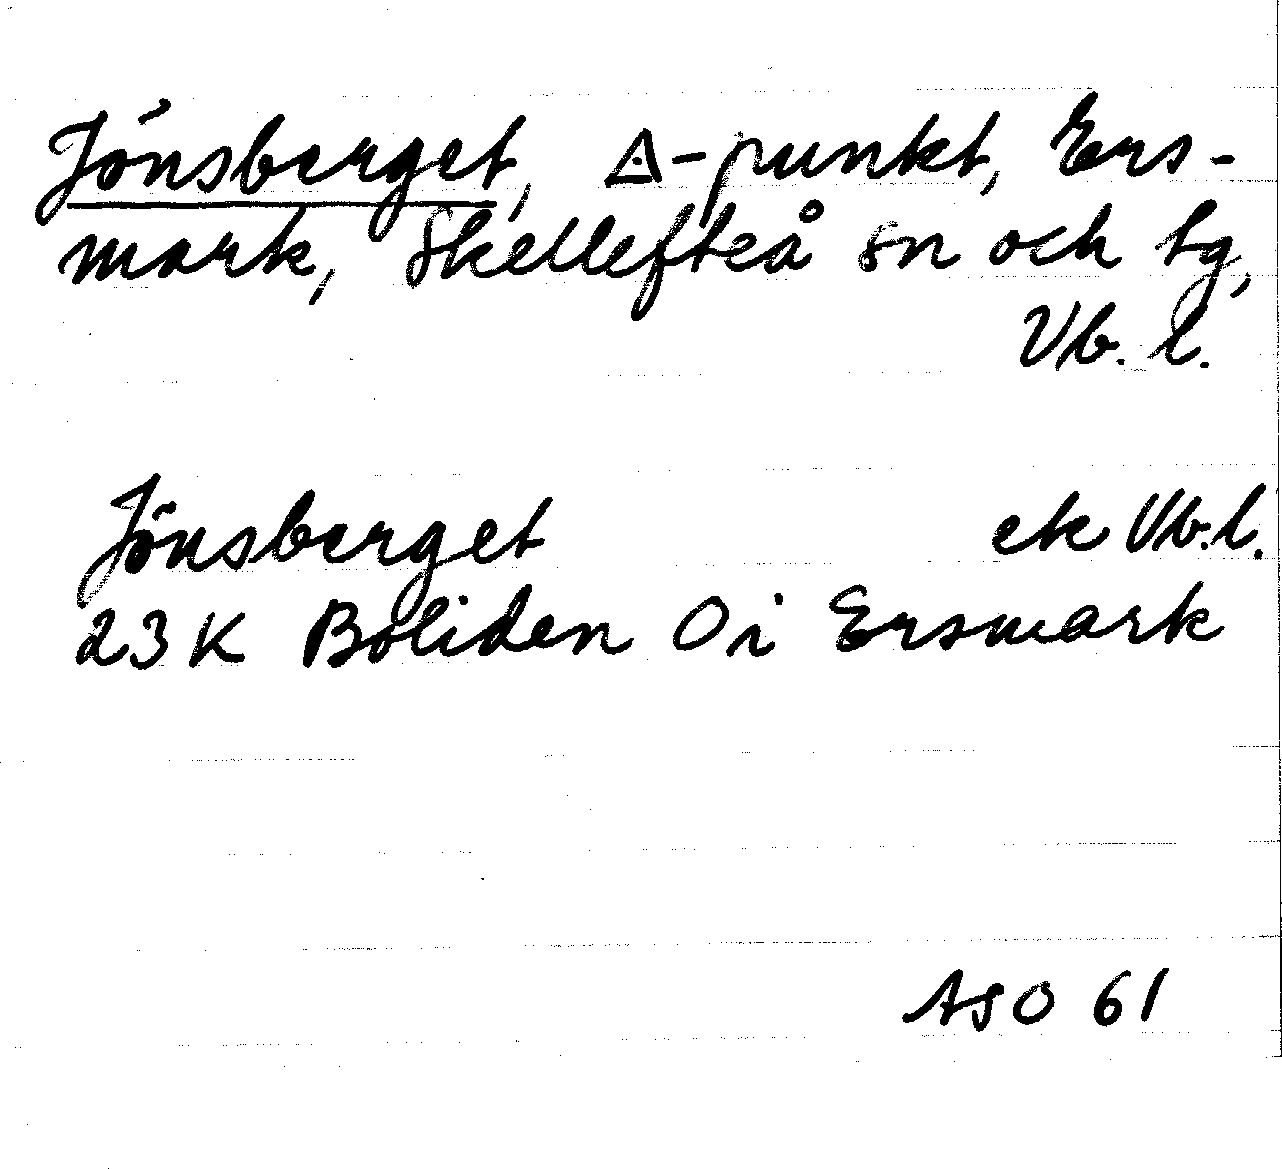 Jönsberget, △-punkt, Ers-
mark, Skellefteå sn och tg,
Vb. l.
Jönsberget ek Vb.l.
23 K Boliden O i Ersmark
ASO 61